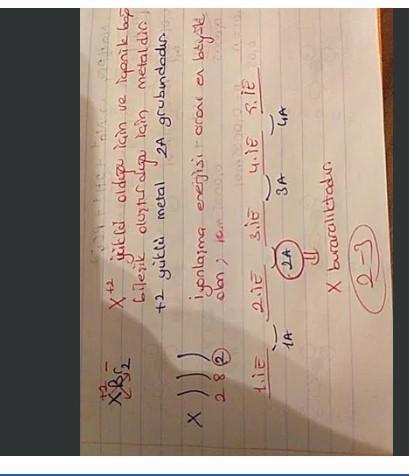 +2 -
X Br2
X+2 yüklü olduğu için ve iyonik bağ
bileşik oluşturduğu için metaldir.
+2 yüklü metal 2A grubundadır.
X ) ) )
2 8 2
İyonlaşma enerjisi oranı en büyük
olan ;
1.İE 2.İE 3.İE 4.İE 5.İE
1A 2A 3A 4A
X bu aralıktadır.
2-3